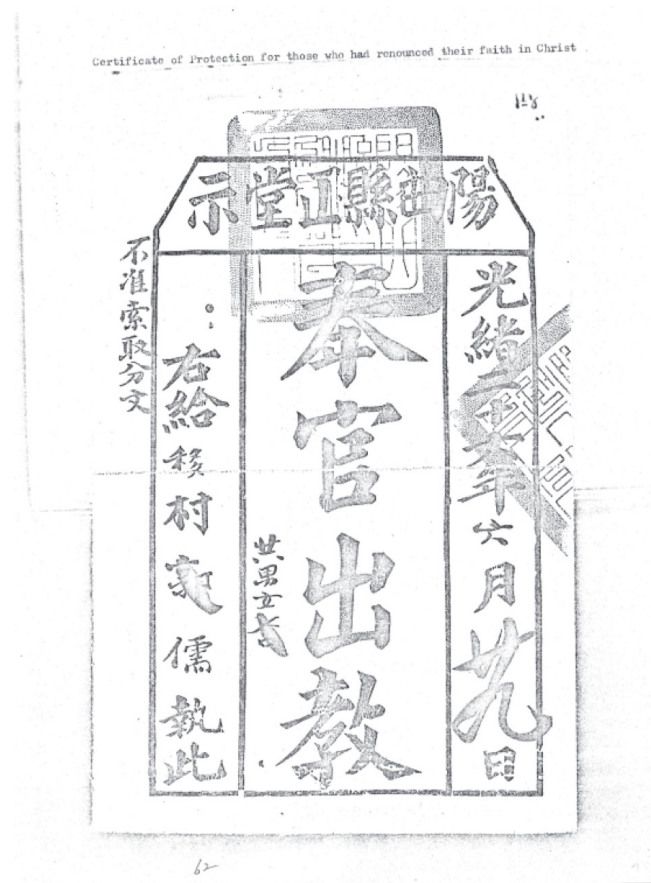 Certificate of Protection for those who had renounced their faith in Christ
118
陽曲縣正堂示
光緒二十六年六月廿九日
奉官出教
共男女
右給移村郭儒執此
不准索取分文
62